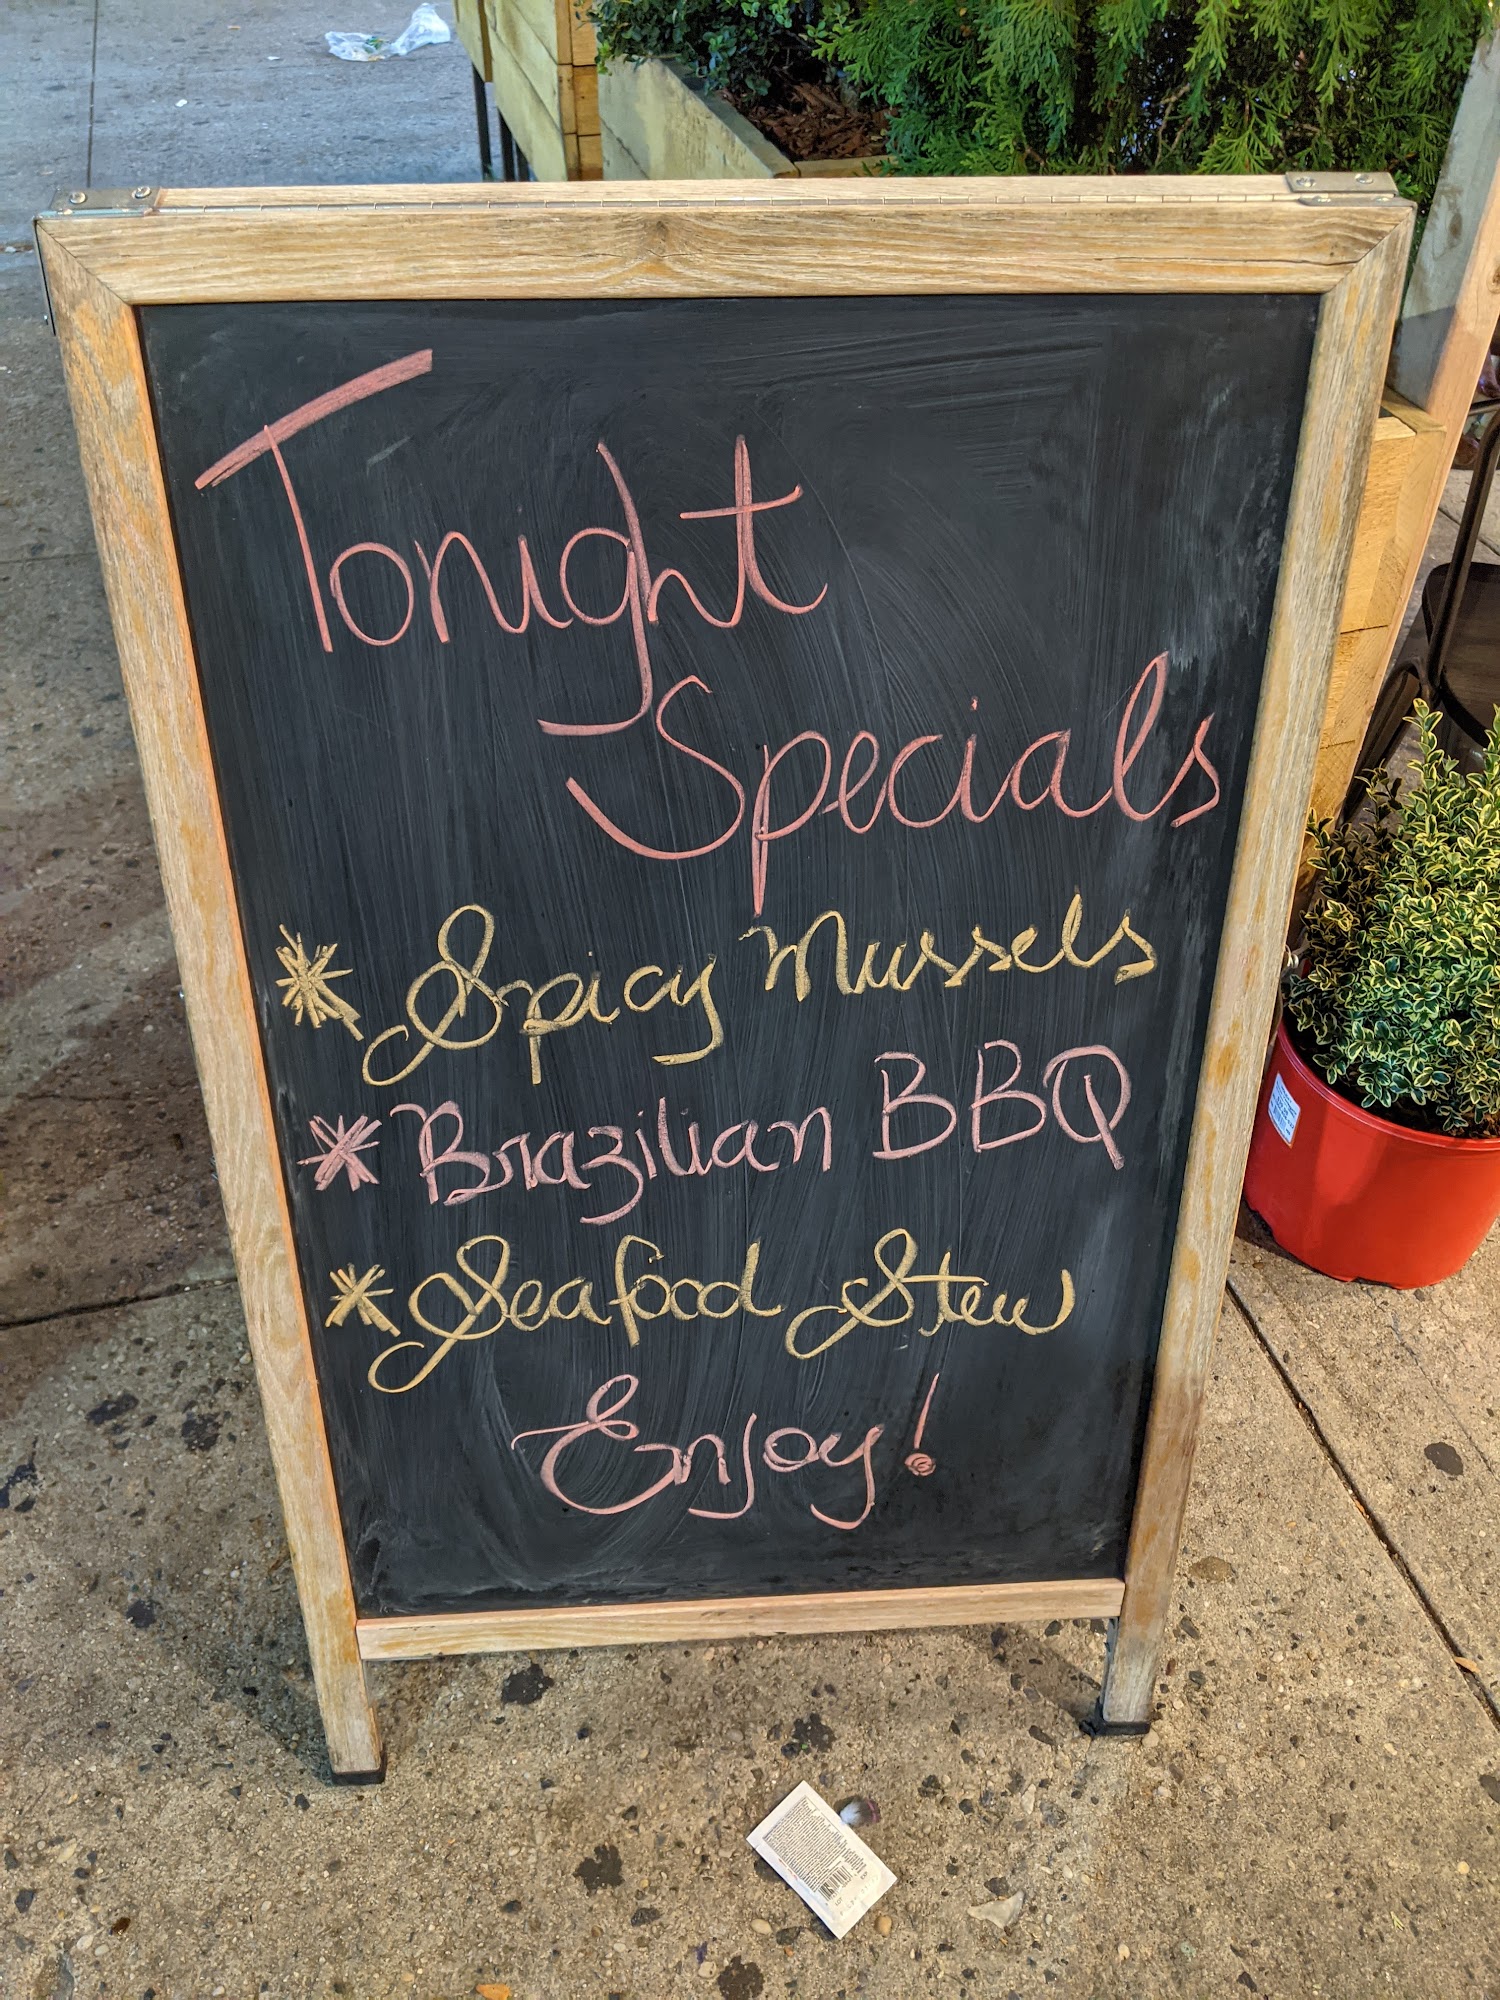 Tonight
Specials
* Spicy Mussels
* Brazilian BBQ
* Seafood Stew
Enjoy!